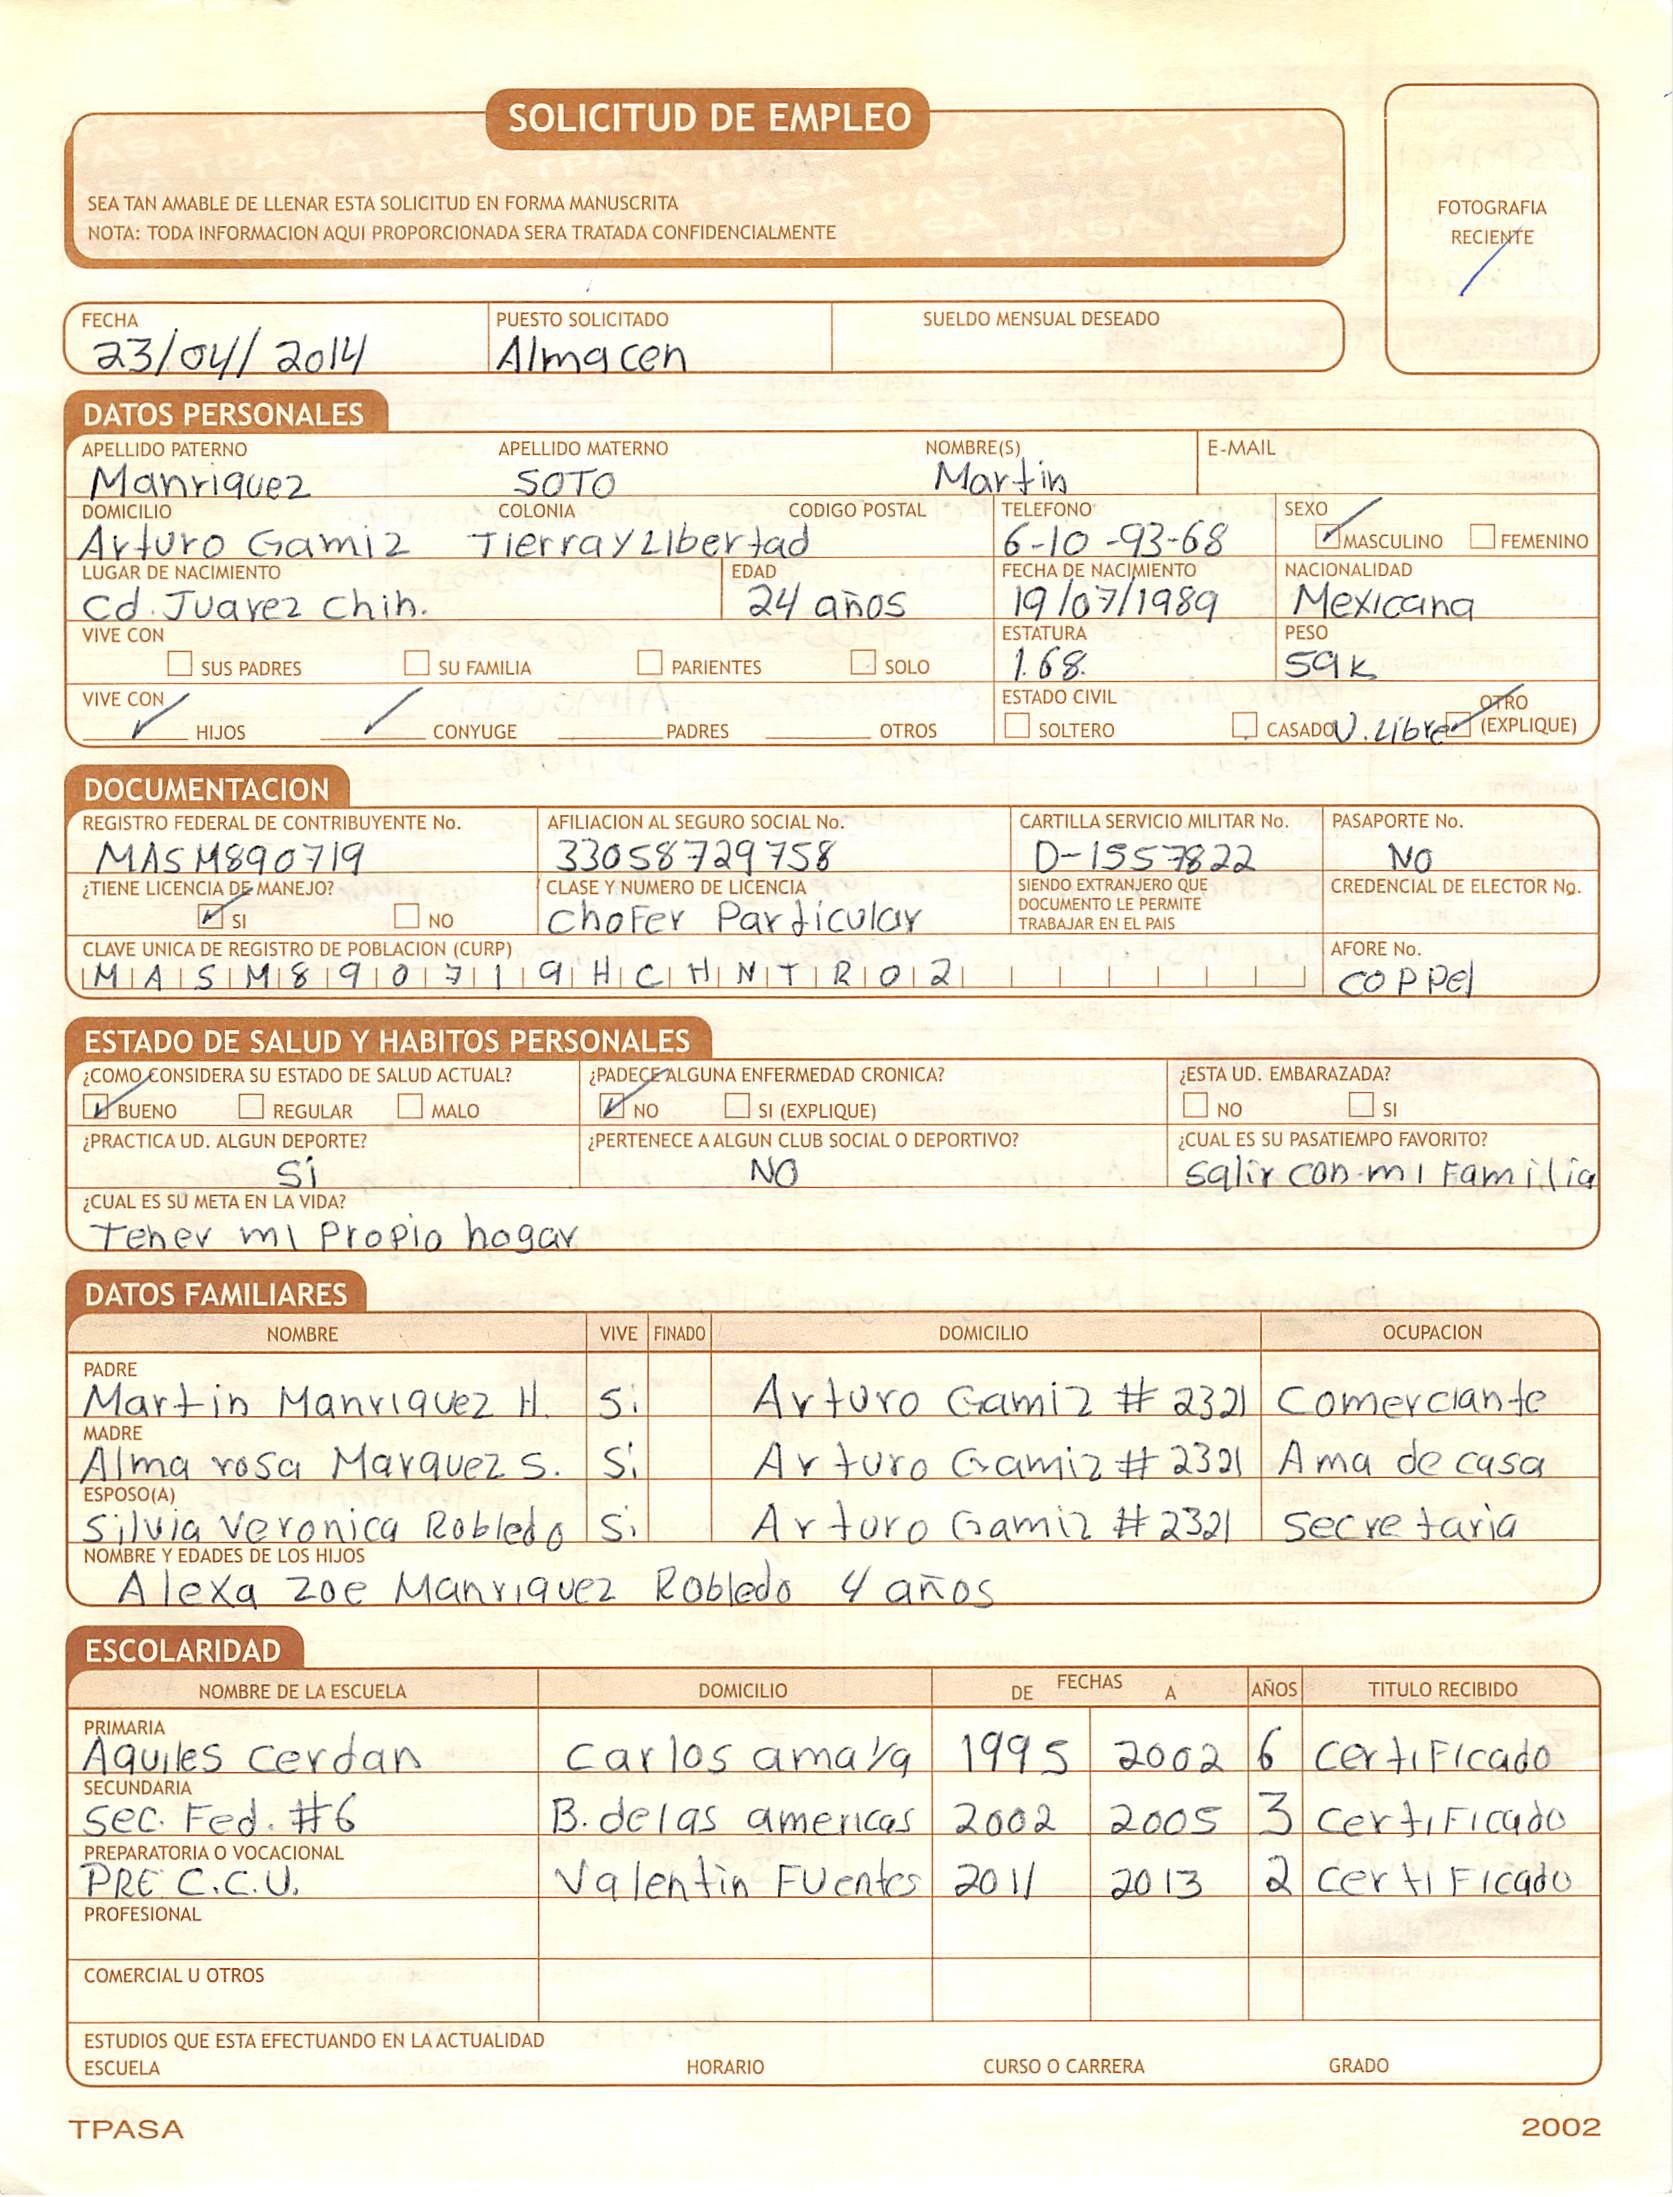 SOLICITUD DE EMPLEO
SEA TAN AMABLE DE LLENAR ESTA SOLICITUD EN FORMA MANUSCRITA
NOTA: TODA INFORMACION AQUI PROPORCIONADA SERA TRATADA CONFIDENCIALMENTE
FOTOGRAFIA
RECIENTE
FECHA PUESTO SOLICITADO SUELDO MENSUAL DESEADO
23/04/2014 Almacen
DATOS PERSONALES
APELLIDO PATERNO APELLIDO MATERNO NOMBRE(S) E-MAIL
Manriquez SOTO Martin
DOMICILIO COLONIA CODIGO POSTAL TELEFONO SEXO
Arturo Gamiz Tierra y Libertad 6-10-93-68 MASCULINO FEMENINO
LUGAR DE NACIMIENTO EDAD FECHA DE NACIMIENTO NACIONALIDAD
Cd. Juarez Chih. 24 años 19/07/1989 Mexicana
VIVE CON ESTATURA PESO
SUS PADRES SU FAMILIA PARIENTES SOLO 1.68. 59k
VIVE CON ESTADO CIVIL OTRO
HIJOS CONYUGE PADRES OTROS SOLTERO CASADO U. Libre (EXPLIQUE)
DOCUMENTACION
REGISTRO FEDERAL DE CONTRIBUYENTE No. AFILIACION AL SEGURO SOCIAL No. CARTILLA SERVICIO MILITAR No. PASAPORTE No.
MASM890719 33058729758 D-1557822 NO
¿TIENE LICENCIA DE MANEJO? CLASE Y NUMERO DE LICENCIA SIENDO EXTRANJERO QUE DOCUMENTO LE PERMITE TRABAJAR EN EL PAIS CREDENCIAL DE ELECTOR No.
SI NO Chofer Particular
CLAVE UNICA DE REGISTRO DE POBLACION (CURP) AFORE No.
MASM890719HCHNTR02 COPPEl
ESTADO DE SALUD Y HABITOS PERSONALES
¿COMO CONSIDERA SU ESTADO DE SALUD ACTUAL? ¿PADECE ALGUNA ENFERMEDAD CRONICA? ¿ESTA UD. EMBARAZADA?
BUENO REGULAR MALO NO SI (EXPLIQUE) NO SI
¿PRACTICA UD. ALGUN DEPORTE? ¿PERTENECE A ALGUN CLUB SOCIAL O DEPORTIVO? ¿CUAL ES SU PASATIEMPO FAVORITO?
Si NO Salir con mi Familia
¿CUAL ES SU META EN LA VIDA?
Tener mi Propio hogar
DATOS FAMILIARES
NOMBRE VIVE FINADO DOMICILIO OCUPACION
PADRE
Martin Manriquez H. Si Arturo Gamiz # 2321 Comerciante
MADRE
Alma rosa Marquez S. Si Arturo Gamiz # 2321 Ama de casa
ESPOSO(A)
Silvia Veronica Robledo Si Arturo Gamiz # 2321 Secretaria
NOMBRE Y EDADES DE LOS HIJOS
Alexa Zoe Manriquez Robledo 4 años
ESCOLARIDAD
NOMBRE DE LA ESCUELA DOMICILIO DE FECHAS A AÑOS TITULO RECIBIDO
PRIMARIA
Aquiles Cerdan Carlos amaya 1995 2002 6 Certificado
SECUNDARIA
Sec. Fed. #6 B. de las americas 2002 2005 3 Certificado
PREPARATORIA O VOCACIONAL
PRE C.C.U. Valentin Fuentes 2011 2013 2 Certificado
PROFESIONAL
COMERCIAL U OTROS
ESTUDIOS QUE ESTA EFECTUANDO EN LA ACTUALIDAD
ESCUELA HORARIO CURSO O CARRERA GRADO
TPASA 2002